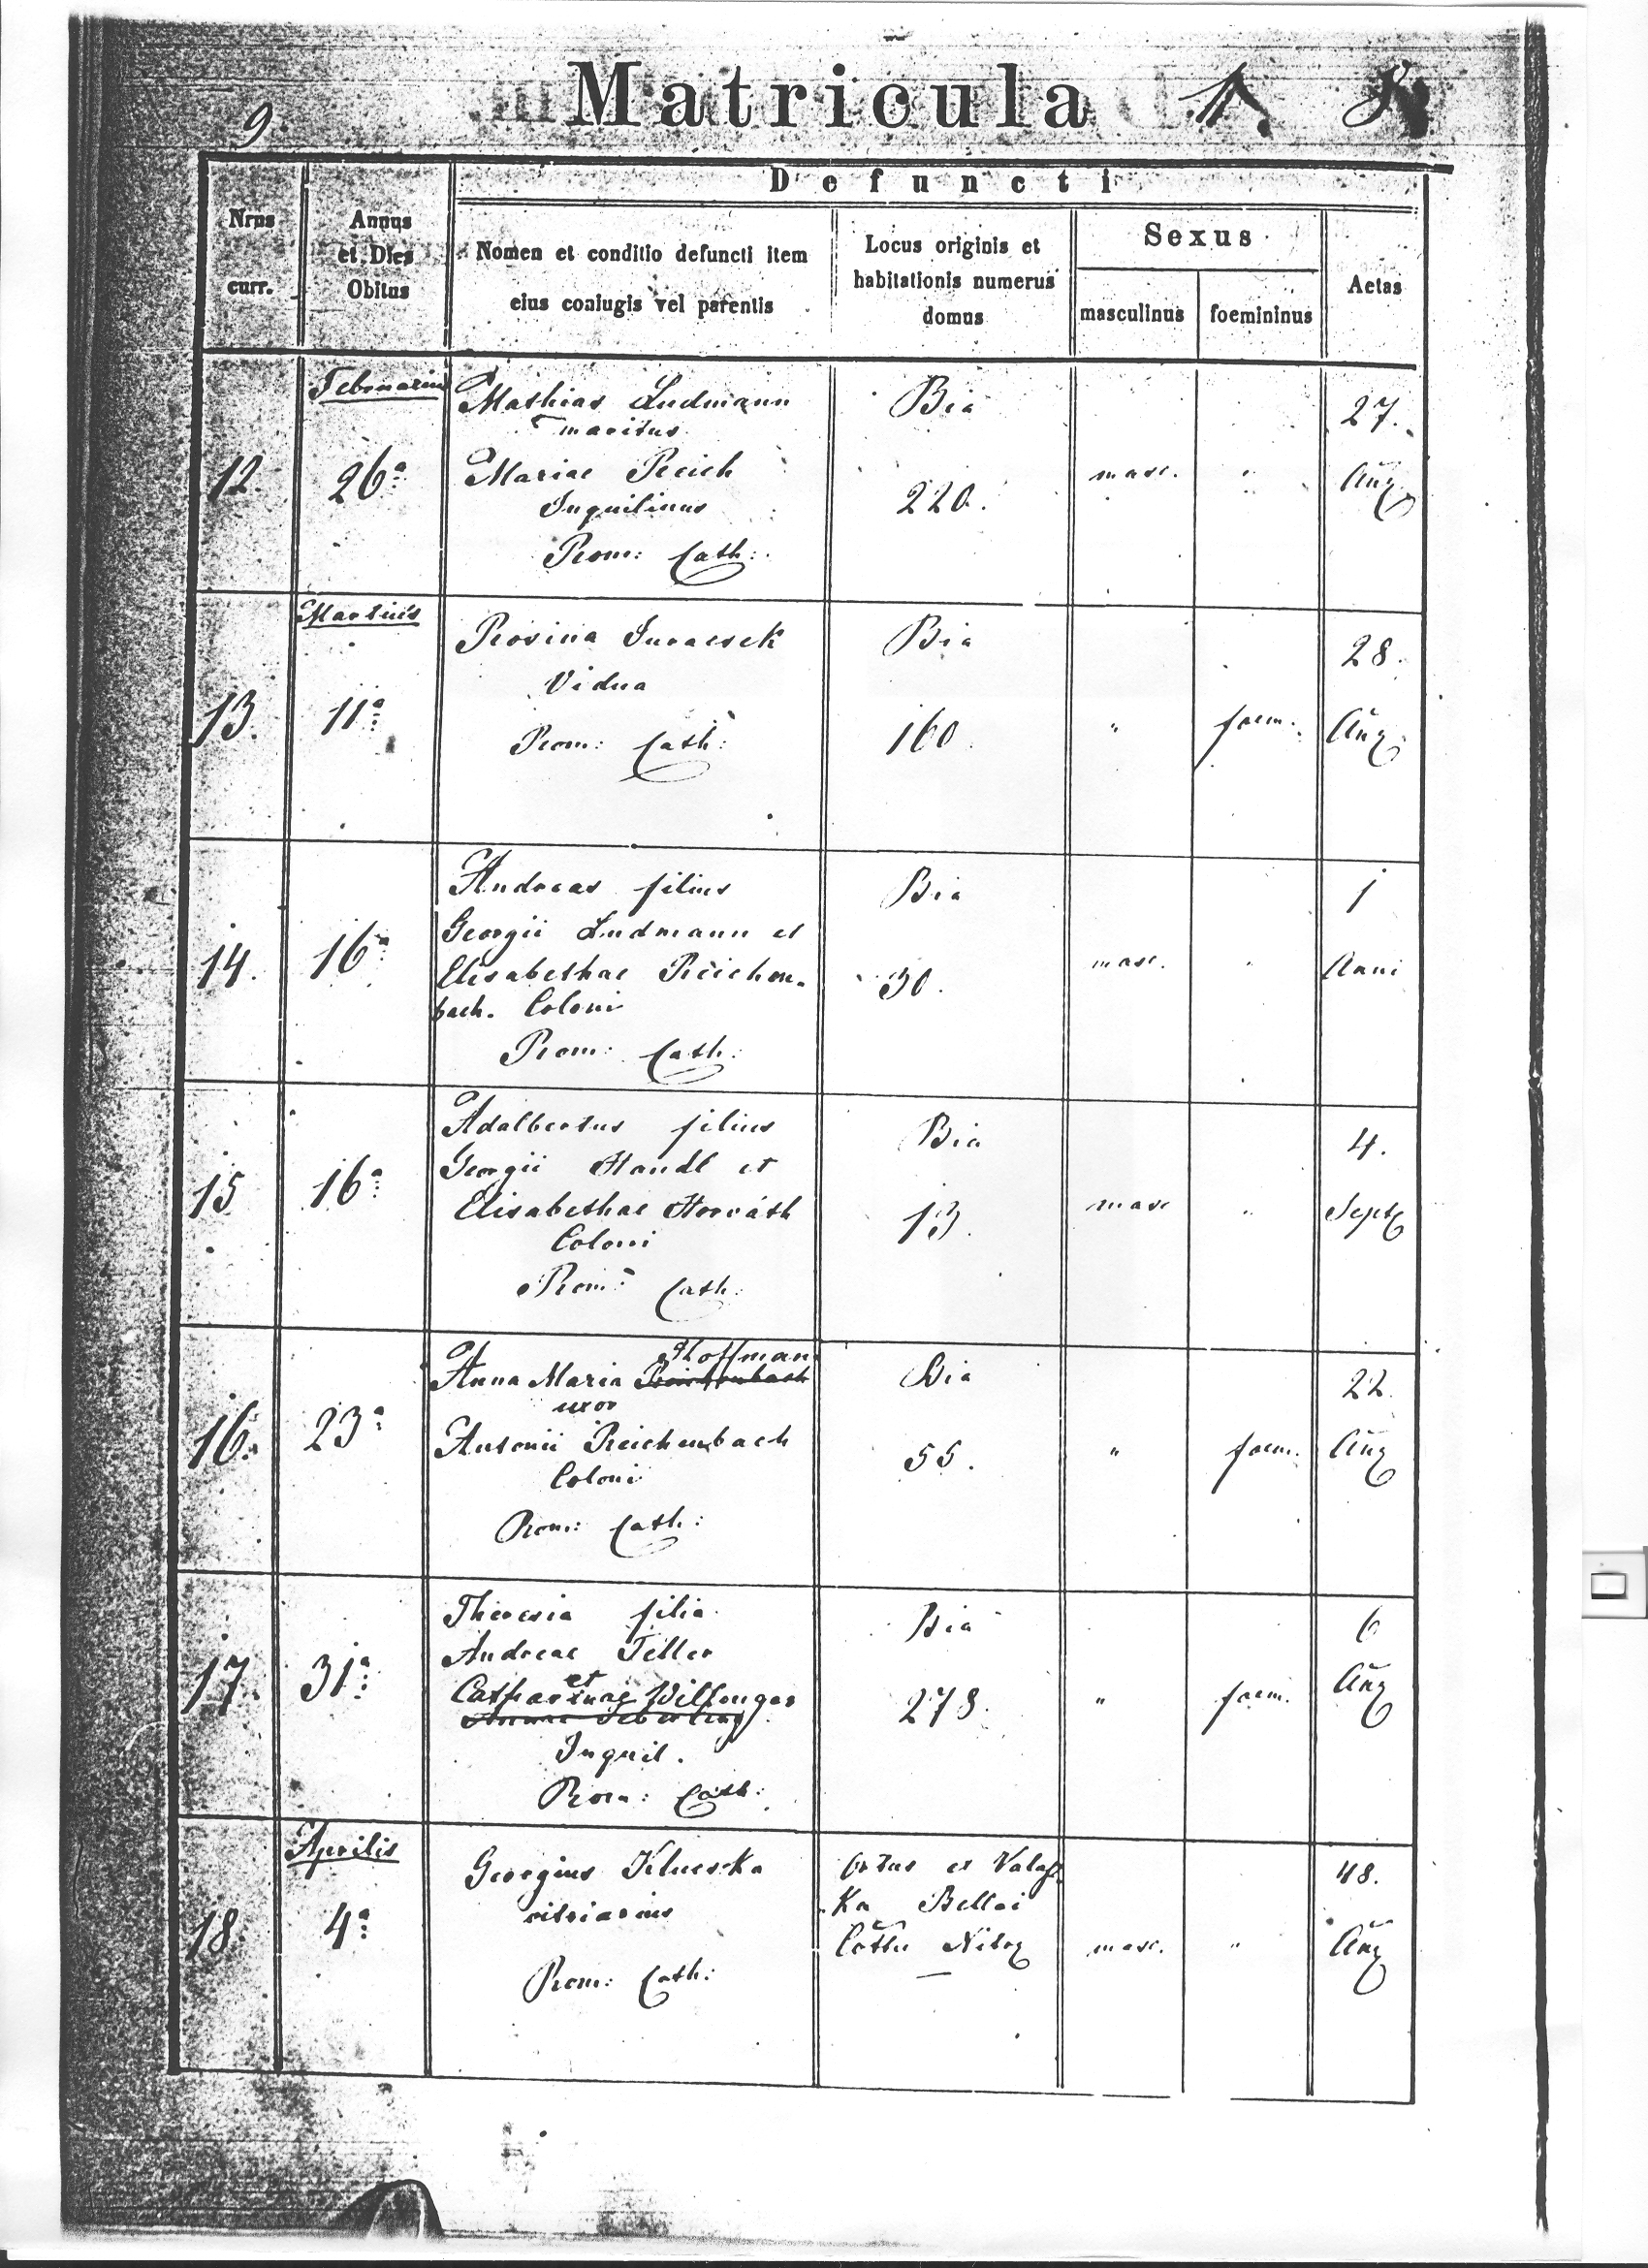 9.
Matricula
Defuncti
Nrus
curr.
Annus
et Dies
Obitus
Nomen et conditio defuncti item
eius coniugis vel parentis
Locus originis et
habitationis numerus
domus
Sexus
masculinus
foemininus
Aetas
Februarius
12
26ª
Mathias Ludmann
maritus
Mariae Reich
Inquilinus
Rom: Cath:
Bia
220.
masc.
"
27.
Martius
13.
11ª
Rosina
Vidua
Rom: Cath:
Bia
160.
"
foem.
28.
14.
16ª
Andreas filius
Georgii Ludmann et
Elisabethae Reichen-
bach. Coloni
Rom: Cath:
Bia
30.
masc.
"
1
Anni
15
16ª
Adalbertus filius
Georgii Handl et
Elisabethae Horváth
Coloni
Rom: Cath:
Bia
13.
masc
"
4.
Sept
16.
23ª
Hoffman
Anna Maria Reichenbach
uxor
Antonii Reichenbach
Coloni
Rom: Cath:
Bia
55.
"
foem.
22.
17.
31ª
Theresia filia
Andreae Feller
et
Catharinae Willinger
Inquil.
Rom: Cath:
Bia
278.
"
foem.
6
Aprilis
18.
4ª
Georgius
vitriarius
Rom: Cath:
Ortus ex
Bellai
Cottu
masc.
"
48.